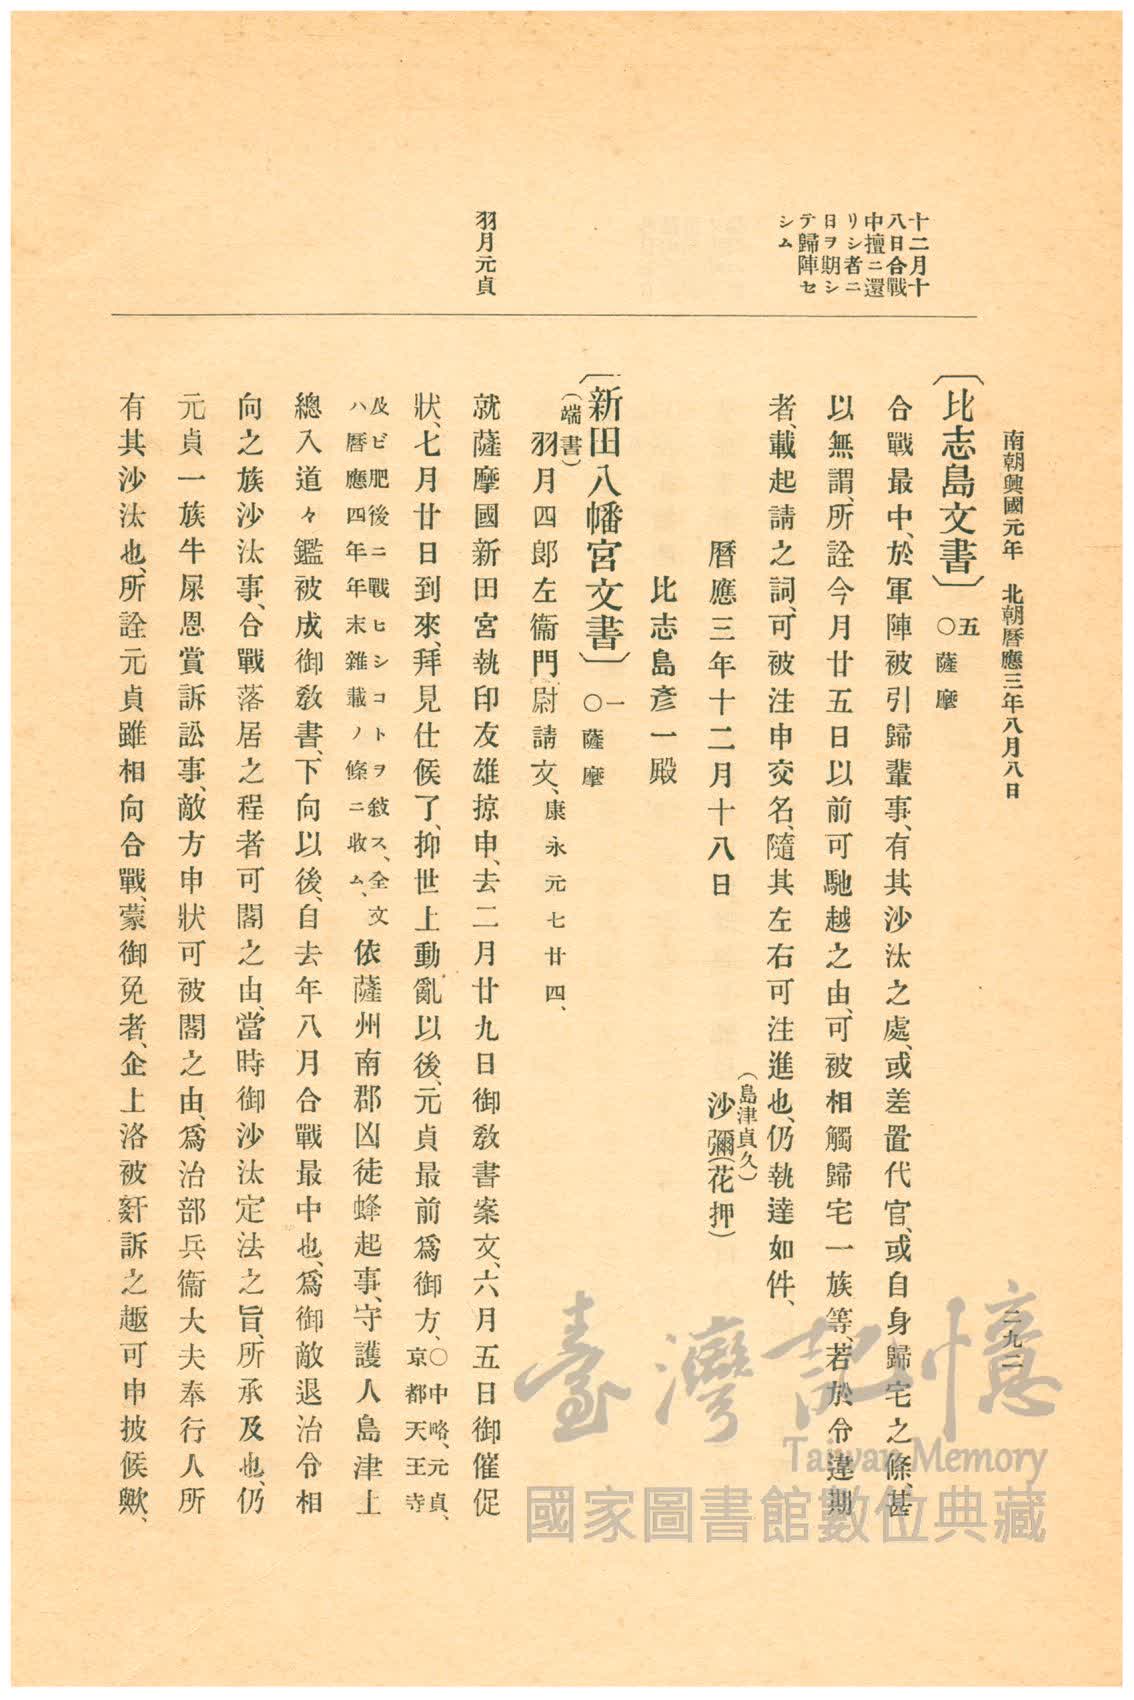 南朝興國元年　北朝曆應三年八月八日
二九二
十二月十
八日合戰
中擅ニ還
リシ者ニ
日ヲ期シ
テ歸陣セ
シム
〔比志島文書〕五○薩摩
合戰最中、於軍陣被引歸輩事、有其沙汰之處、或差置代官、或自身歸宅之條、甚
以無謂、所詮今月廿五日以前可馳越之由、可被相觸歸宅一族等、若於令違期
者、載起請之詞、可被注申交名、隨其左右可注進也、仍執達如件、
曆應三年十二月十八日
(島津貞久)
沙彌(花押)
比志島彥一殿
〔新田八幡宮文書〕一○薩摩
(端書)
羽月四郎左衞門尉請文、康永元七廿四、
羽月元貞
就薩摩國新田宮執印友雄掠申、去二月廿九日御教書案文、六月五日御催促
狀、七月廿日到來、拜見仕候了、抑世上動亂以後、元貞最前爲御方、○中略、元貞、京都天王寺
及ビ肥後ニ戰ヒシコトヲ敍ス、全文ハ曆應四年年末雜載ノ條ニ收ム、依薩州南郡凶徒蜂起事、守護人島津上
總入道々鑑被成御教書、下向以後、自去年八月合戰最中也、爲御敵退治令相
向之族沙汰事、合戰落居之程者可閣之由、當時御沙汰定法之旨、所承及也、仍
元貞一族牛屎恩賞訴訟事、敵方申狀可被閣之由、爲治部兵衞大夫奉行人所
有其沙汰也、所詮元貞雖相向合戰、蒙御免者、企上洛被姧訴之趣可申披候歟、
臺灣記憶
Taiwan Memory
國家圖書館數位典藏